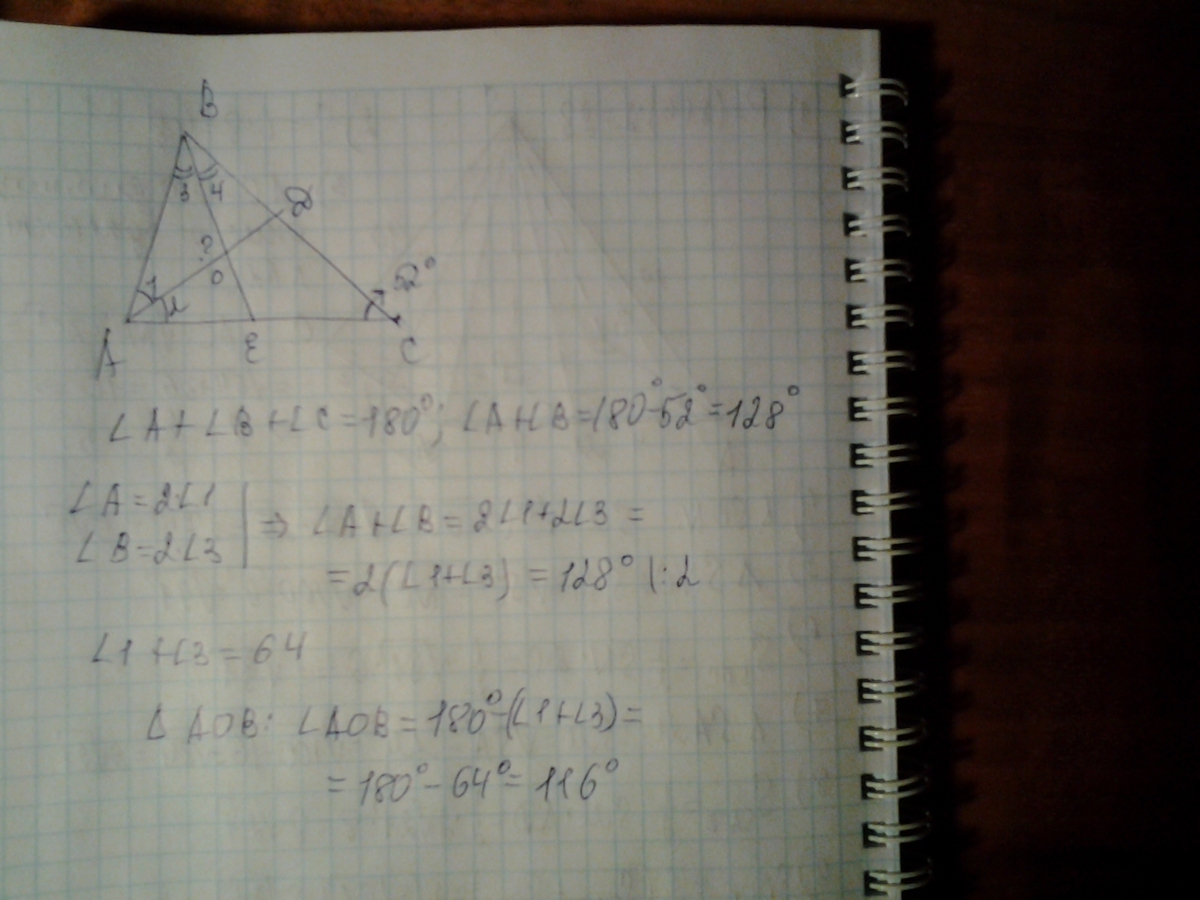 B
3 4
D
?
O
1
2
A
E
C
∠A+∠B+∠C=180°; ∠A+∠B=180°-52°=128°
∠A=2∠1
∠B=2∠3
⇒ ∠A+∠B=2∠1+2∠3=
=2(∠1+∠3)=128° |:2
∠1+∠3=64
Δ AOB: ∠AOB=180°-(∠1+∠3)=
=180°-64°=116°